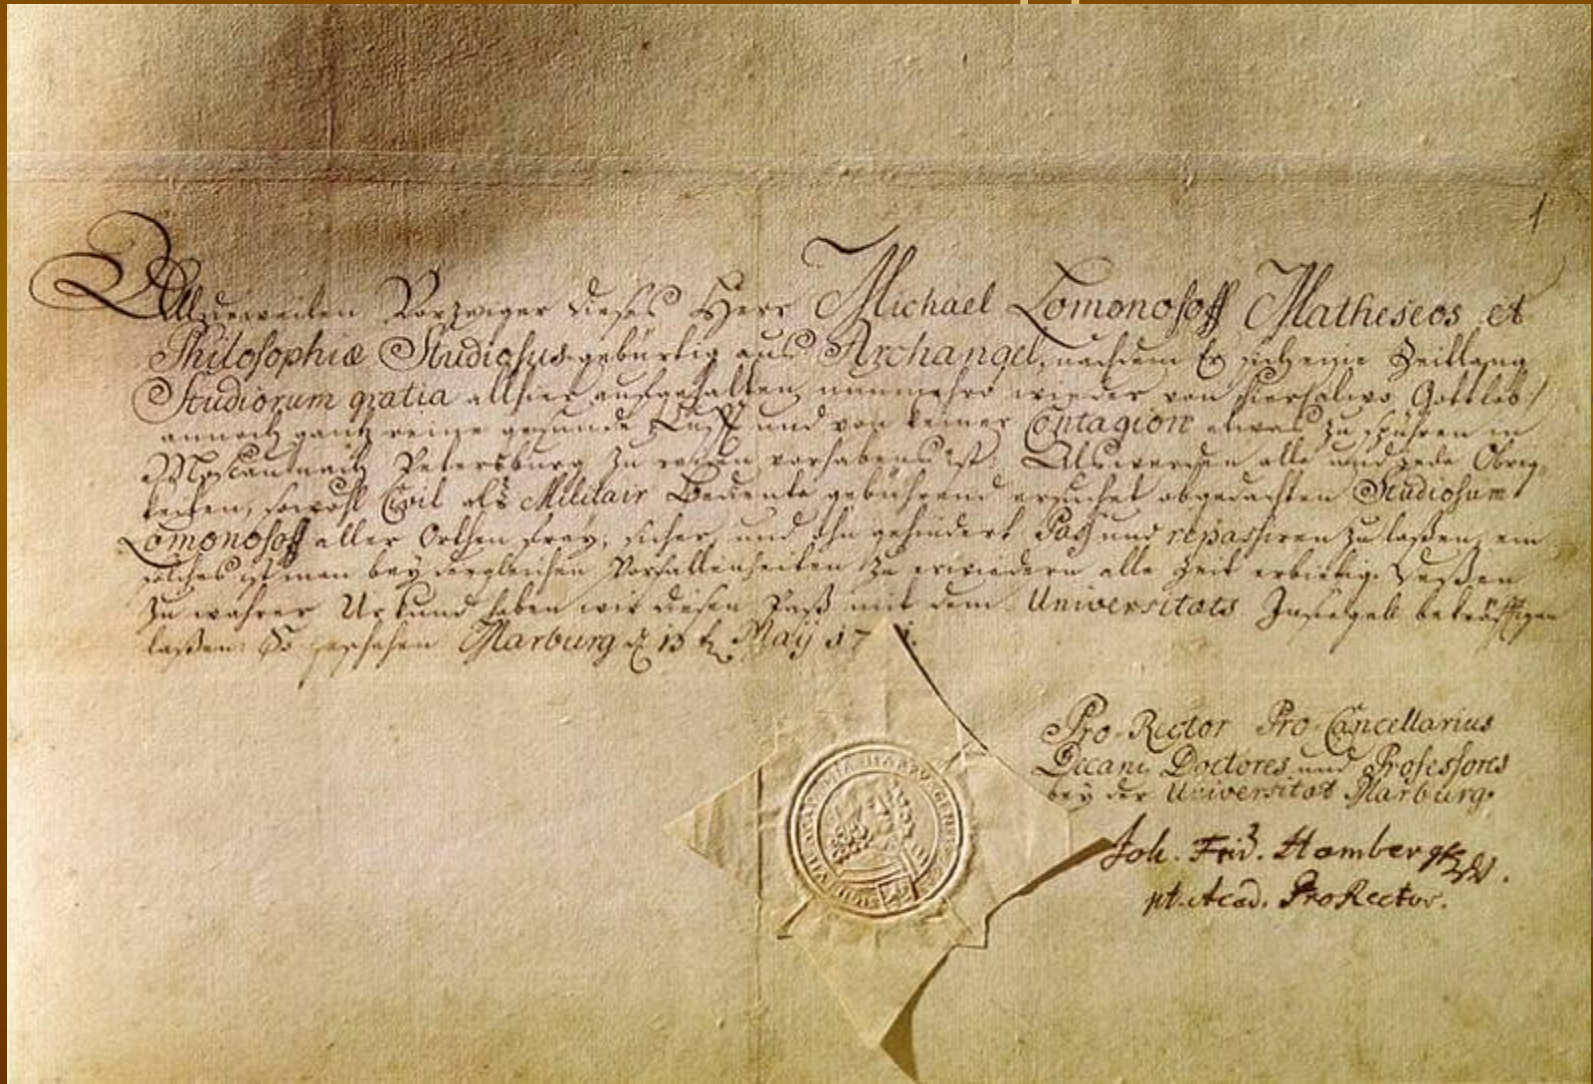 1
Alldieweilen Vorzeiger dieses Herr Michael Lomonosoff Matheseos et
Philosophiæ Studiosus gebürtig aus Archangel, nachdem Er sich eine Zeitlang
Studiorum gratia allhier aufgehalten, nunmehro wieder von hier, alwo Gottlob!
annoch gantz reine gesunde Lufft und von keiner Contagion etwas zu spühren in
Moscau nach Petersburg zu reisen vorhabens ist; Als werden alle und jede Obrig-
keiten, sowohl Civil als Militair Bediente gebührend ersuchet abgedachten Studiosum
Lomonosoff aller Orthen frey, sicher, und ohngehindert Paß und repassiren zu laßen, ein
solches ist man bey dergleichen Vorfallenheiten zu erwiedern alle Zeit erbiethig. Deßen
zu wahrer Urkund haben wir diesen Paß mit dem Universitäts Insiegel bekräfftigen
laßen. So geschehen Marburg d. 13 May 17
Pro-Rector Pro Cancellarius
Decani, Doctores und Professores
bey der Universität Marburg.
Joh. Frid. Homberg
pt. Acad. ProRector.